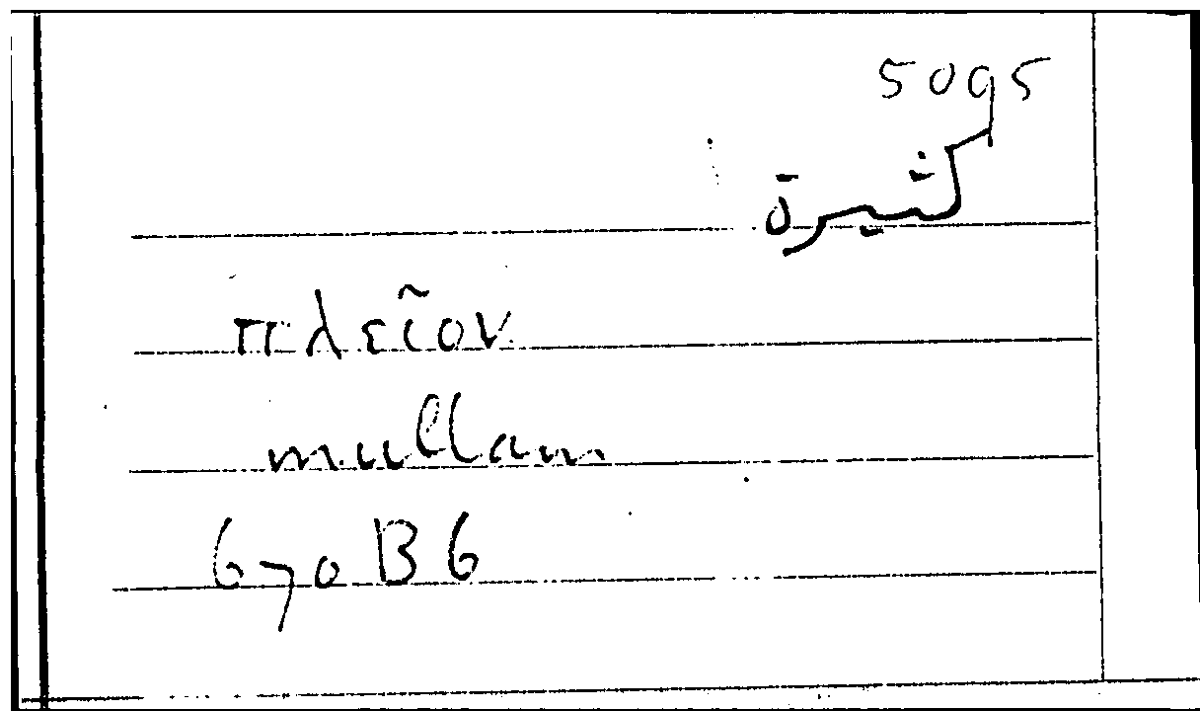 5095
كثيرة
πλεῖον
mullam
670 B 6